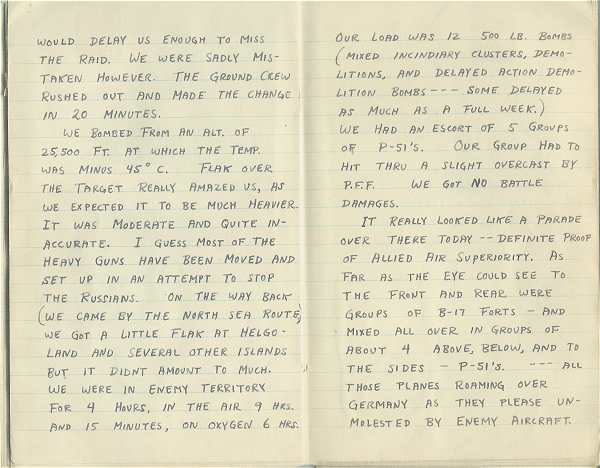 WOULD DELAY US ENOUGH TO MISS
THE RAID. WE WERE SADLY MIS-
TAKEN HOWEVER. THE GROUND CREW
RUSHED OUT AND MADE THE CHANGE
IN 20 MINUTES.
WE BOMBED FROM AN ALT. OF
25,500 FT. AT WHICH THE TEMP.
WAS MINUS 45° C. FLAK OVER
THE TARGET REALLY AMAZED US, AS
WE EXPECTED IT TO BE MUCH HEAVIER.
IT WAS MODERATE AND QUITE IN-
ACCURATE. I GUESS MOST OF THE
HEAVY GUNS HAVE BEEN MOVED AND
SET UP IN AN ATTEMPT TO STOP
THE RUSSIANS. ON THE WAY BACK
(WE CAME BY THE NORTH SEA ROUTE)
WE GOT A LITTLE FLAK AT HELGO-
LAND AND SEVERAL OTHER ISLANDS
BUT IT DIDNT AMOUNT TO MUCH.
WE WERE IN ENEMY TERRITORY
FOR 4 HOURS, IN THE AIR 9 HRS.
AND 15 MINUTES, ON OXYGEN 6 HRS.
OUR LOAD WAS 12 500 LB. BOMBS
(MIXED INCINDIARY CLUSTERS, DEMO-
LITIONS, AND DELAYED ACTION DEMO-
LITION BOMBS --- SOME DELAYED
AS MUCH AS A FULL WEEK.)
WE HAD AN ESCORT OF 5 GROUPS
OF P-51'S. OUR GROUP HAD TO
HIT THRU A SLIGHT OVERCAST BY
P.F.F. WE GOT NO BATTLE
DAMAGES.
IT REALLY LOOKED LIKE A PARADE
OVER THERE TODAY -- DEFINITE PROOF
OF ALLIED AIR SUPERIORITY. AS
FAR AS THE EYE COULD SEE TO
THE FRONT AND REAR WERE
GROUPS OF B-17 FORTS - AND
MIXED ALL OVER IN GROUPS OF
ABOUT 4 ABOVE, BELOW, AND TO
THE SIDES - P-51'S. --- ALL
THOSE PLANES ROAMING OVER
GERMANY AS THEY PLEASE UN-
MOLESTED BY ENEMY AIRCRAFT.